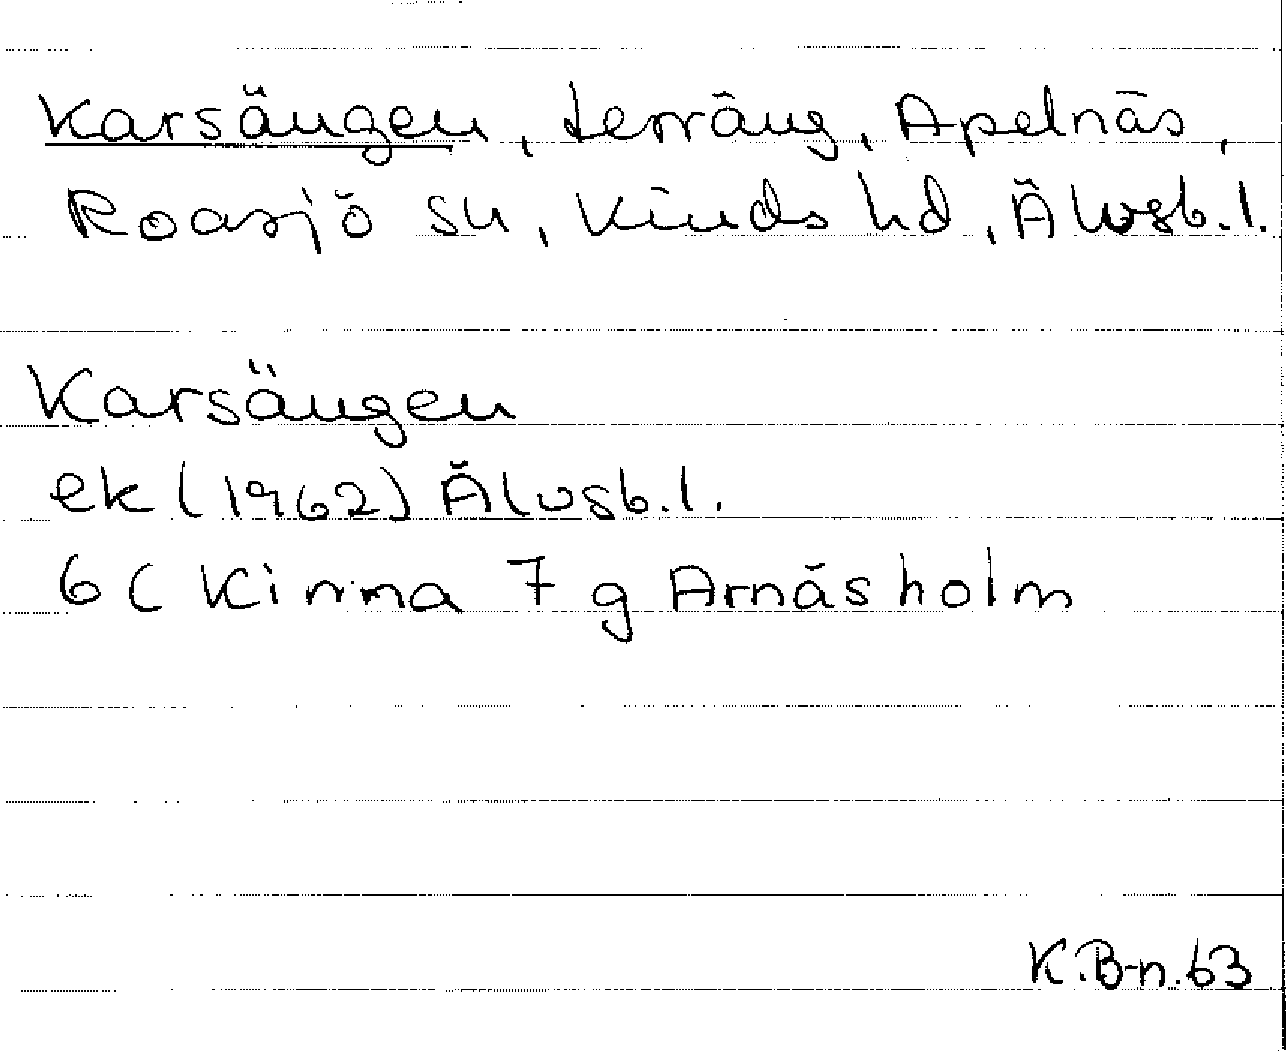 Karsängen, terräng, Apelnäs,
Roasjö sn, Kinds hd, Älvsb.l.
Karsängen
ek (1962) Älvsb.l.
6C Kinna 7g Arnäsholm
K.B-n.63